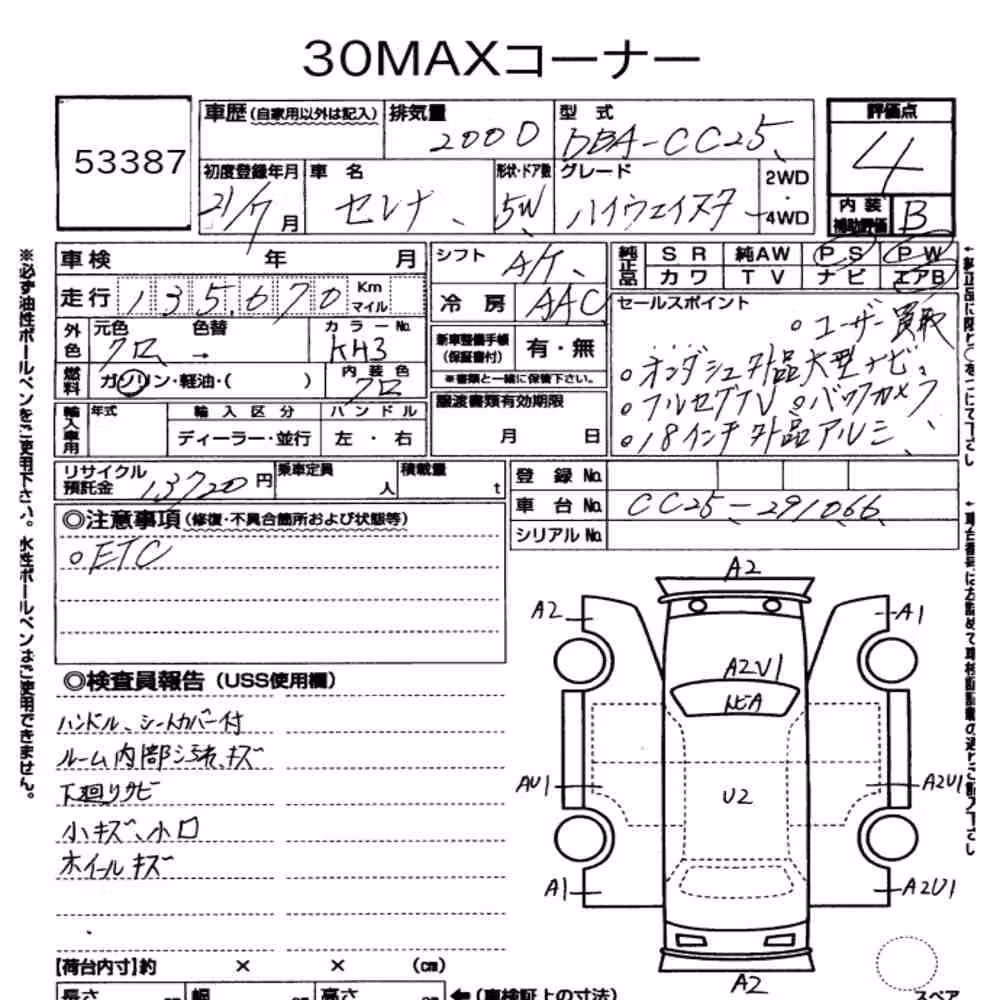 30MAXコーナー
53387
車歴(自家用以外は記入)
排気量
2000
型 式
DBA-CC25
評価点
4
初度登録年月
21/7月
車 名
セレナ
形状・ドア数
5W
グレード
ハイウェイスター
2WD
4WD
内 装
補助評価
B
車検 年 月
シフト
A/T
純正品
S R 純AW P S P W
カ ワ T V ナビ エアB
走行 135,670 Km
マイル
冷 房
AAC
セールスポイント
○ユーザー買取
○オンダッシュ外品大型ナビ
○フルセグTV ○バックカメラ
○18インチ外品アルミ
外色
元色 色替
クロ →
カラーNo.
KH3
新車整備手帳
(保証書付)
有・無
※書類と一緒に保管下さい。
燃料
ガソリン・軽油・( )
内装色
クロ
譲渡書類有効期限
月 日
輸入車用
年式
輸入区分
ハンドル
ディーラー・並行
左 ・ 右
リサイクル
預託金
13720円
乗車定員
人
積載量
t
登 録 No.
車 台 No.
CC25-291066
シリアル No.
◎注意事項(修復・不具合箇所および状態等)
○ETC
◎検査員報告(USS使用欄)
ハンドル、シートカバー付
ルーム内部汚れ、キズ
下廻りサビ
小キズ、小凹
ホイールキズ
A2
A2
A1
A2U1
トビA
AU1
U2
A2U1
A1
A2U1
A2
【荷台内寸】約 × × (cm)
長さ
幅
高さ
(車検証上の寸法)
スペア
※必ず油性ボールペンをご使用下さい。水性ボールペンはご使用できません。